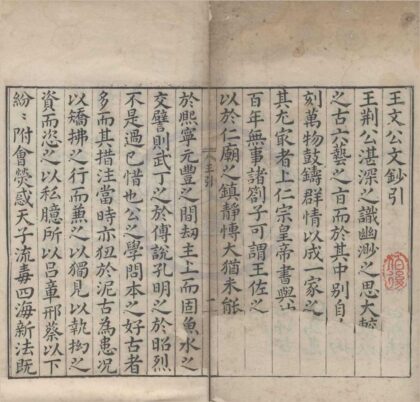 王文公文鈔引
王荆公湛深之識幽渺之思大較
之古六藝之旨而於其中別自
刻萬物鼓鑄羣情以成一家之
其尤最者上仁宗皇帝書與
百年無事諸劄子可謂王佐之
以於仁廟之鎮靜博大猶未能
王引
一
於熙寧元豐之間刼主上而固魚水之
交譬則武丁之於傅說孔明之於昭烈
不是過已惜也公之學問本之好古者
多而其措注當時亦狃於泥古為患况
以矯拂之行而兼之以獨見以執拗之
資而恣之以私臆所以呂章邢蔡以下
紛〻附會熒惑天子流毒四海新法既